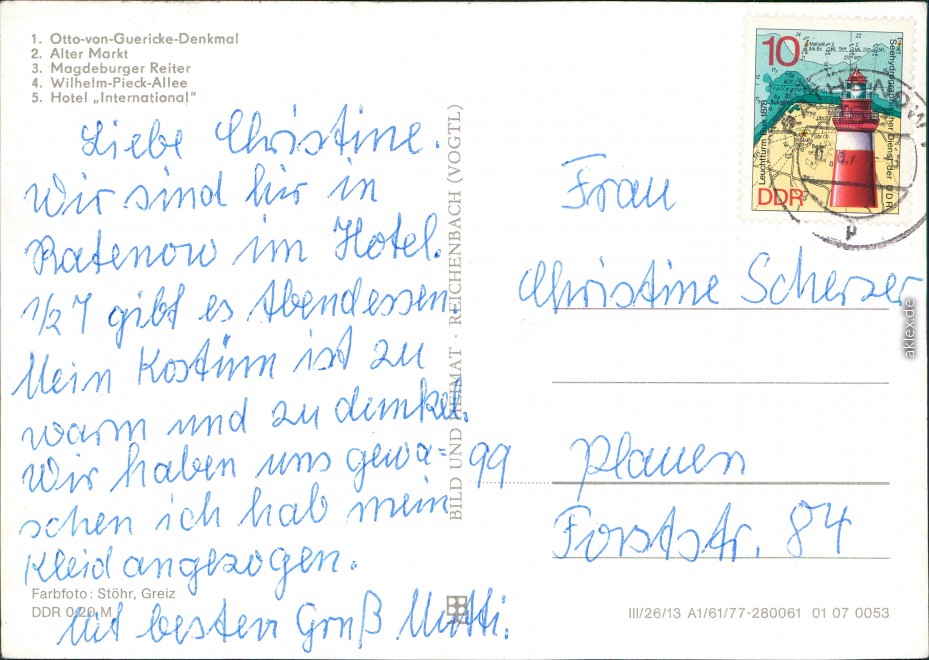 1. Otto-von-Guericke-Denkmal
2. Alter Markt
3. Magdeburger Reiter
4. Wilhelm-Pieck-Allee
5. Hotel „International"
Liebe Christine.
Wir sind hir in
Ratenow im Hotel.
1/2 7 gibt es Abendessen.
Mein Kostüm ist zu
warm und zu dunkel.
Wir haben uns gewa=
schen ich hab mein
Kleid angezogen.
Mit besten Gruß Mutti.
Farbfoto: Stöhr, Greiz
DDR 0,20 M
BILD UND HEIMAT · REICHENBACH (VOGTL)
10
Leuchtturm Buk 1878
Seehydrographischer Dienst der DDR
DDR
Frau
Christine Scherzer
99 Plauen
Forststr. 84
III/26/13 A1/61/77-280061 01 07 0053
aklex.de